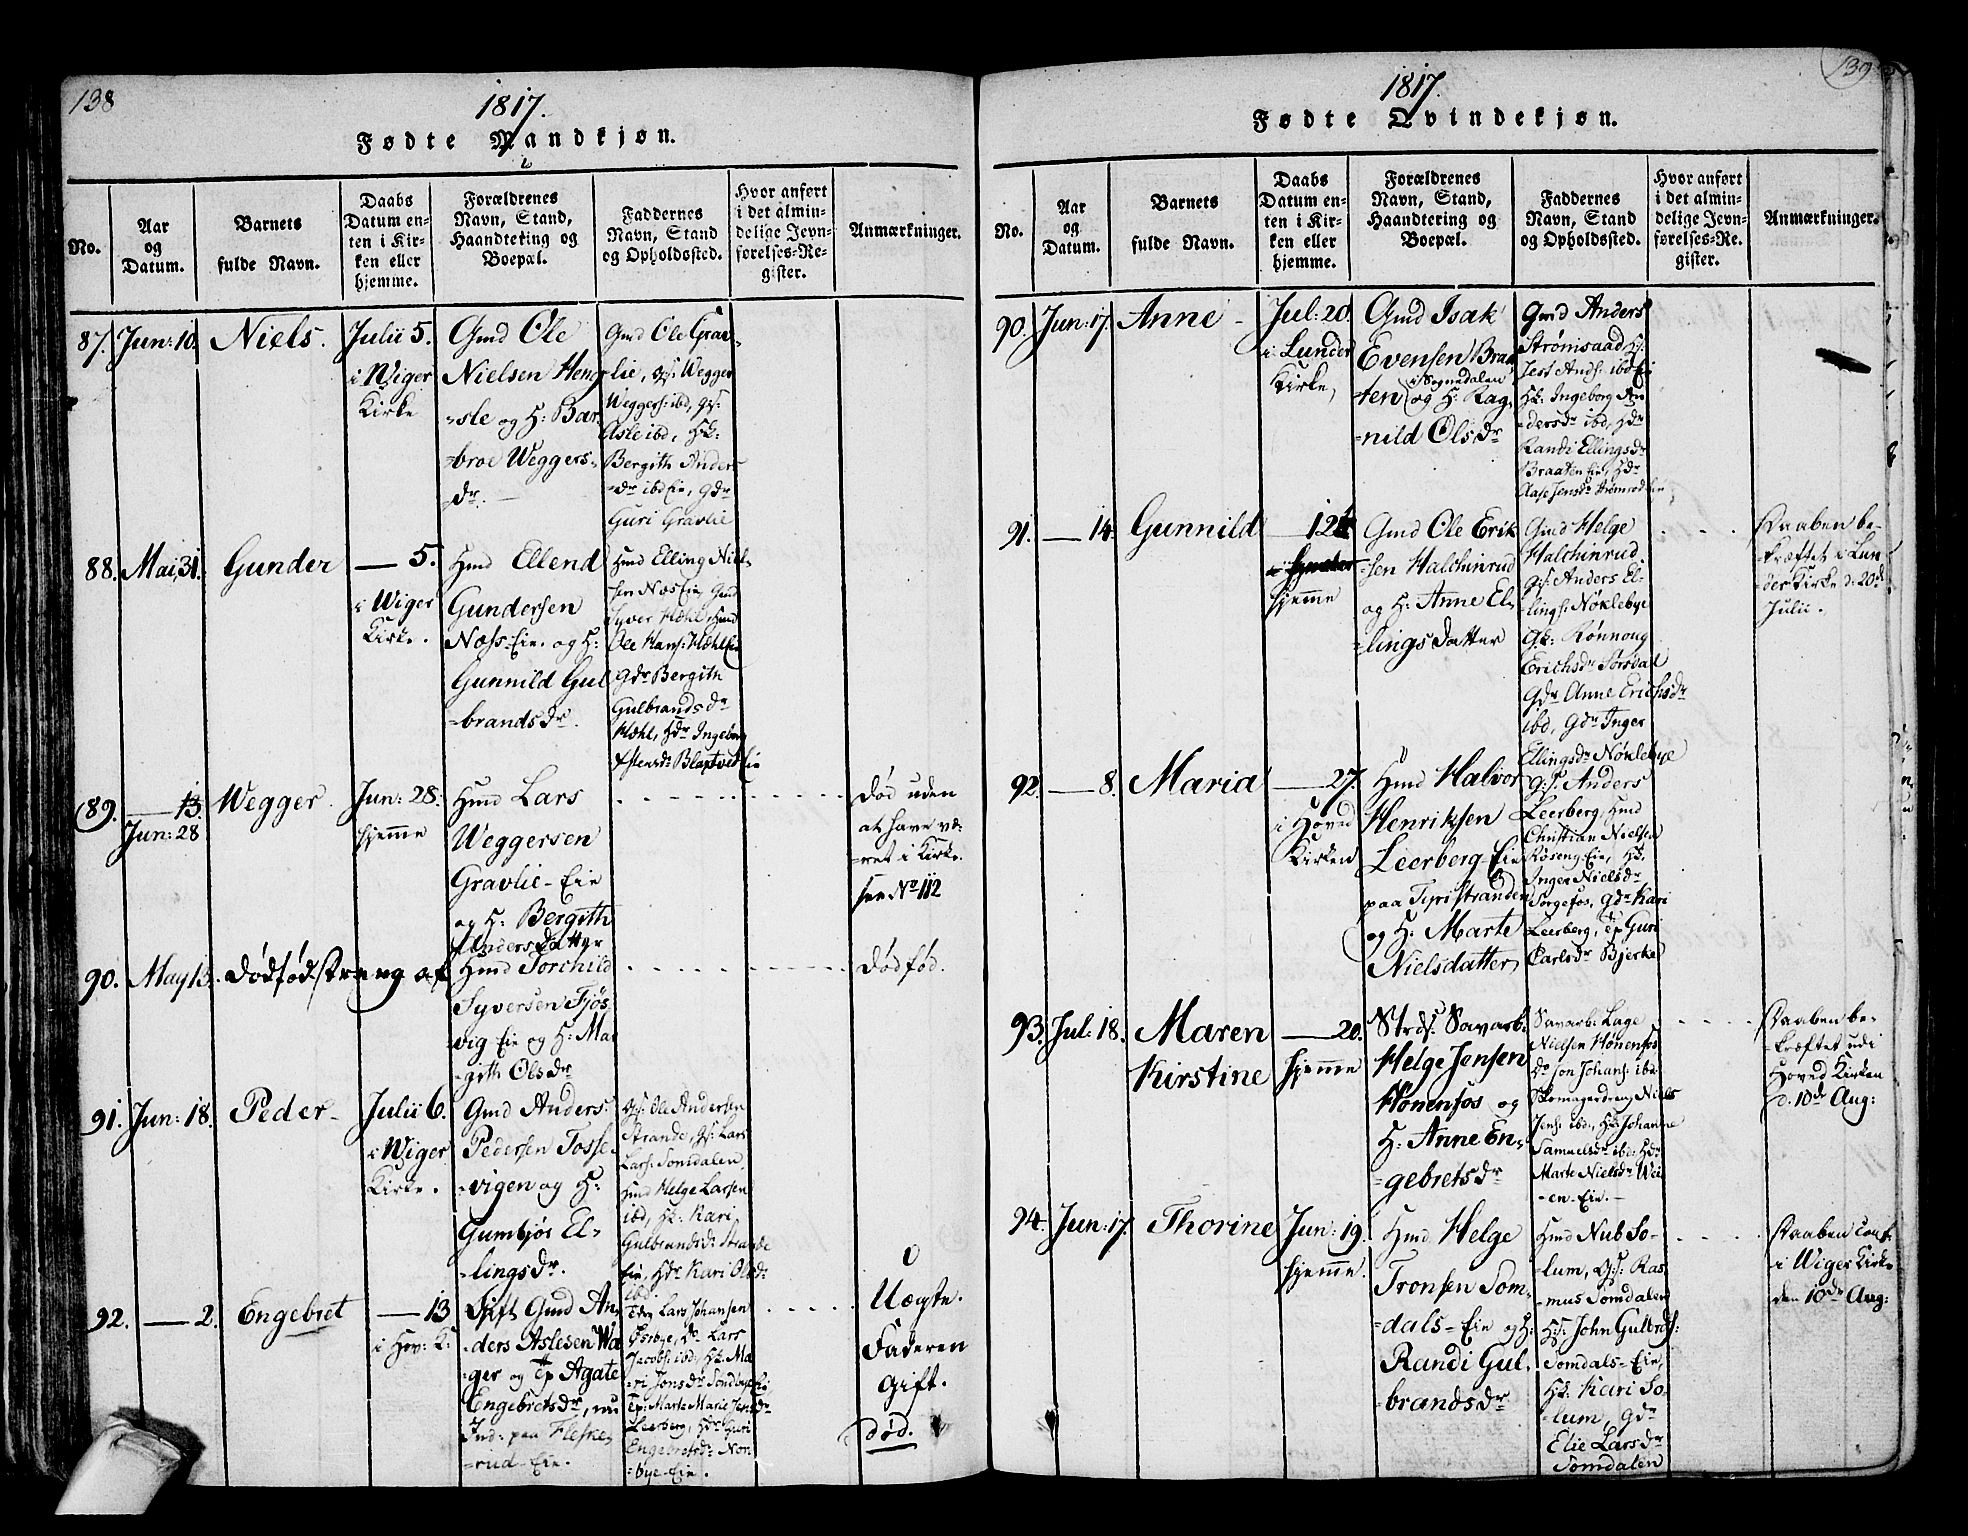 138
1817.
Fødte Mandkjøn.
No.
Aar
og
Datum.
Barnets
fulde Navn.
Daabs
Datum en-
ten i Kir-
ken eller
hjemme.
Forældrenes
Navn, Stand,
Haandtering og
Boepæl.
Faddernes
Navn, Stand
og Opholdssted.
Hvor anført
i det almin-
delige Jevn-
førelses-Re-
gister.
Anmærkninger.
87. Jun: 10.
Niels.
Julii 5.
i Wiger
Kirke
Gmd Ole
Nielsen Heng
-sle og H: Bar
-broe Weggers-
dr.
Gmd Ole Grav-
lie, gs: Wegger
Weggers: ibd, gs:
Asle ibd, Hk:
Bergith Anders
-dr ibd Eie, gdr
Guri Gravlie
88. Mai 31.
Gunder
— 5.
i Wiger
Kirke.
Hmd Ellend
Gundersen
Næss-Eie. og H:
Gunnild Gul
-brandsdr.
Hmd Elling Niel-
sen Næs Eie, Gmd
Syver Hæhl, Hmd
Ole Hans: Hæhls Eie
gdr Bergith
Gulbrandsdr
Hæhl, Hdr Ingeborg
89. — 13.
Jun: 28
Wegger
Jun: 28.
hjemme
Hmd Lars
Weggersen
Gravlie-Eie
og H: Bergith
Andersdatter
Død uden
at have væ-
ret i Kirke.
see No 112
90. May 13.
Dødfødt dreng af
Hmd Torchild
Syversen Fjøs
vig Eie og H: Ma
-gith Olsdr
Dødfød.
91. Jun: 18.
Peder
Julii 6.
i Wiger
Kirke.
Gmd Anders
Pedersen Fosse-
-vigen og H:
Gunbjør El-
-lingsdr.
gs: Ole Andersen
Strande, gs: Lars
Lars: Somdalen
Hmd Helge Larsen
ibd, Hk: Kari
Gulbrandsdr Strande
Eie, Hdr Kari Olsdr
ibd.
92. — 2.
Engebret
— 13
i Hov: K:
Gift Gmd An
-ders Aslesen Wa
-ger og Tp Agate
Engebretsdr, nu
Ind: paa Fleske-
-rud-Eie.
Lars Johansen
Jacobs: ibd: Hk: Ma
-ri Jonsdr
Tp: Marte Marie Jensdr
Leerberg, Hdr Guri
Engebretsdr Non
-bye-Eie.
Uægte.
Faderen
gift.
død.
139
1817.
Fødte Qvindekjøn.
No.
Aar
og
Datum.
Barnets
fulde Navn.
Daabs
Datum en-
ten i Kir-
ken eller
hjemme.
Forældrenes
Navn, Stand,
Haandtering og
Boepæl.
Faddernes
Navn, Stand
og Opholdssted.
Hvor anført
i det almin-
delige Jevn-
førelses-Re-
gister.
Anmærkninger.
90. Jun: 17.
Anne
Jul: 20.
i Lunder
Kirke,
Gmd Isak
Evensen Braa
-ten i Sognedalen
og H: Rag
-nild Olsdr
Gmd Anders
Strømsaad
Jest Ands: ibd Eie
Hk: Ingeborg An
-dersdr ibd, Hdr
Randi Ellingsdr
Braaten Eie, Hdr
Aase Jensdr
91. — 14.
Gunnild
— 12
hjemme
Gmd Ole Erik
-sen Halchinrud
og H: Anne El-
-lingsdatter
Gmd Helge
Halchinrud
gs: Anders El-
-lings: Nøklebye
gk: Rønnoug
Erichsdr Sørsdal
gdr Anne Erichsdr
ibd, gdr Inger
Ellingsdr Nøklebye
Daaben be-
-kræftet i Lun
-der Kirke d: 20de
Julii.
92. — 8.
Maria
— 27.
i Hoved
Kirken
Hmd Halvor
Henriksen
Leerberg-Eie
paa Tyristranden
og H: Marte
Nielsdatter
gs: Anders
Leerberg, Hmd
Christian Nielsen
Røseng-Eie, Hk.
Inger Nielsdr
Sorgefos, gdr Kari
Leerberg, Tp Guri
Carlsdr Bjerke
93. Jul: 18.
Maren
Kirstine
— 20.
hjemme
Strds: Savarb:
Helge Jensen
Hønenfos og
H: Anne En-
-gebretsdr
Savarb: Lage
Nielsen Hønenfos
do Jon Johans: ibd
Skomagerdreng Niels
Jens: ibd:, Hk: Johanne
Samuelsdr ibd: Hdr
Marte Nielsdr Wei
-en-Eie.
Daaben be-
-kræftet udi
Hoved Kirken
d. 10de Aug:
94. Jun: 17.
Thorine
Jun: 19.
hjemme.
Hmd Helge
Tronsen Som-
-dals-Eie og H:
Randi Gul
-brandsdr
Hmd Nub So-
-lum, gs: Ras
-mus Somdalen
Hs: John Gulbrds:
Somdals-Eie,
Hk: Kari So-
-lum, gdr
Elie Larsdr
Somdalen
Daaben conf.
i Wiger Kirke
den 10de Aug: